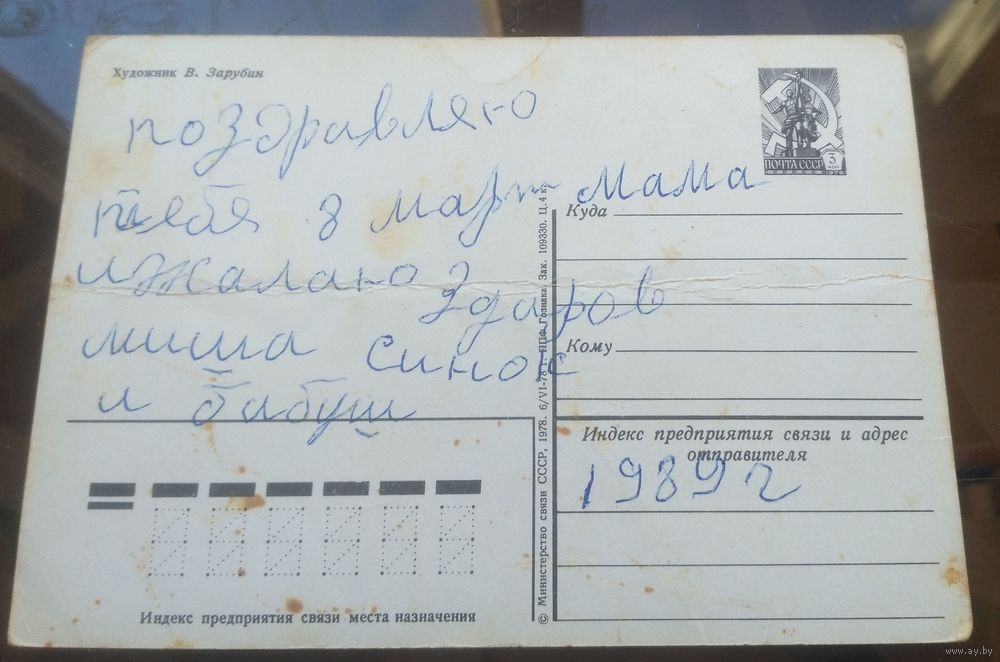 Художник В. Зарубин
ПОЧТА СССР
3
КОП
1976
поздравляю
тебя 8 март мама
и жалаю здаров
миша синок
и бабуш
Куда
Кому
Индекс предприятия связи и адрес
отправителя
1989 г
Индекс предприятия связи места назначения
© Министерство связи СССР, 1978. 6/VI-78 г. ППФ Гознака Зак. 109330. Ц. 4 к.
www.ay.by